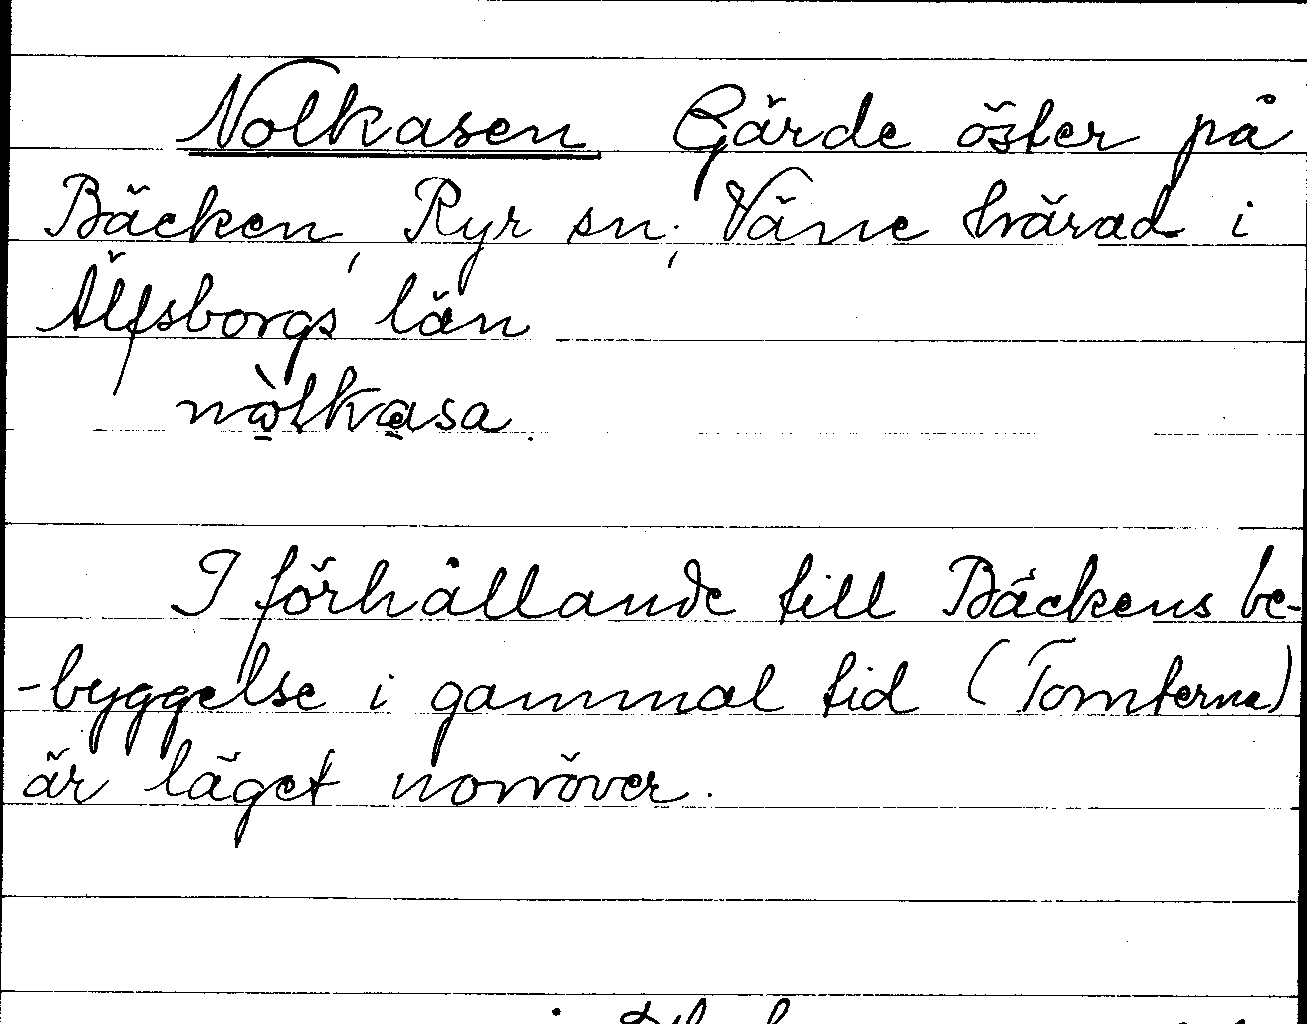 Nolkasen Gärde öster på
Bäcken, Ryr sn; Väne härad i
Älfsborgs län
nòlkasa.
I förhållande till Bäckens be-
-byggelse i gammal tid (Tomterna)
är läget norröver.